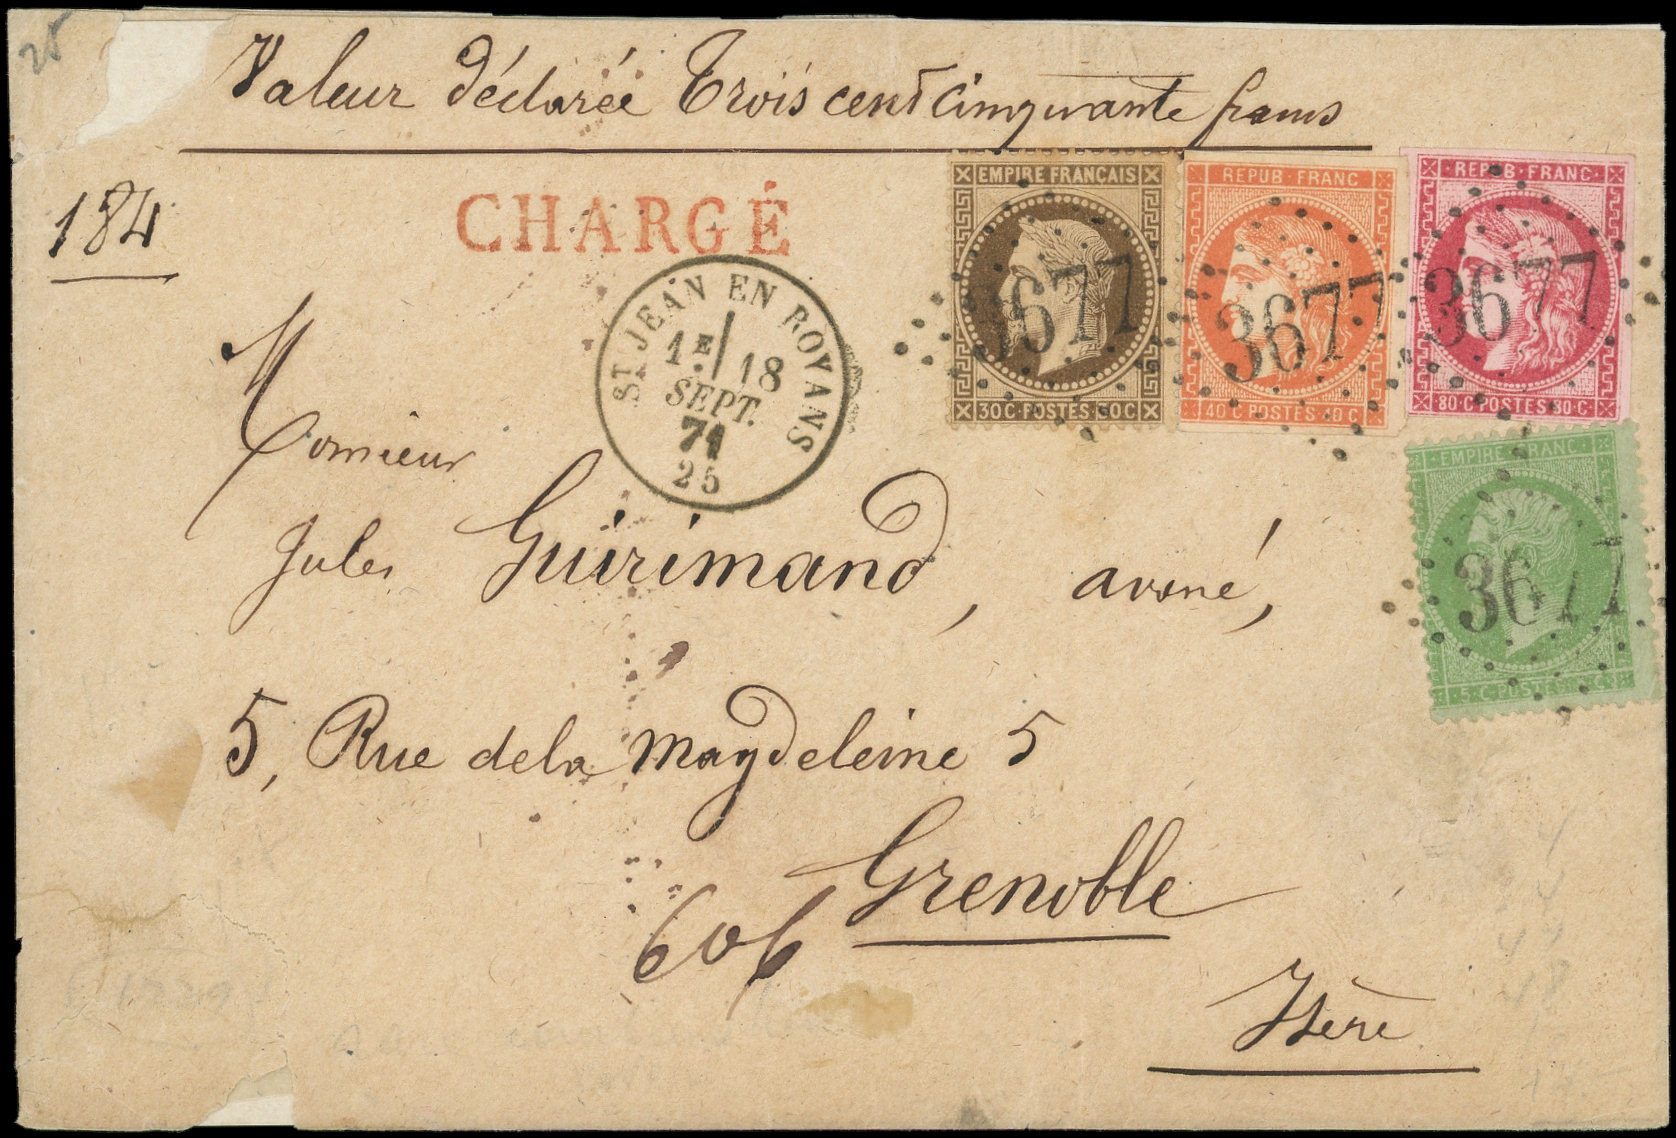 25
Valeur déclarée Trois cent cinquante francs
184
CHARGÉ
EMPIRE FRANÇAIS
30 C POSTES 30 C
3677
REPUB FRANC
40 C POSTES 40 C
3677
REPUB FRANC
80 C POSTES 80 C
3677
ST JEAN EN ROYANS
1E 18
SEPT.
71
25
EMPIRE FRANC
5 C POSTES 5 C
3677
Monsieur
Jules Guirimand, avoué,
5, Rue de la Magdeleine 5
Grenoble
606
Isère